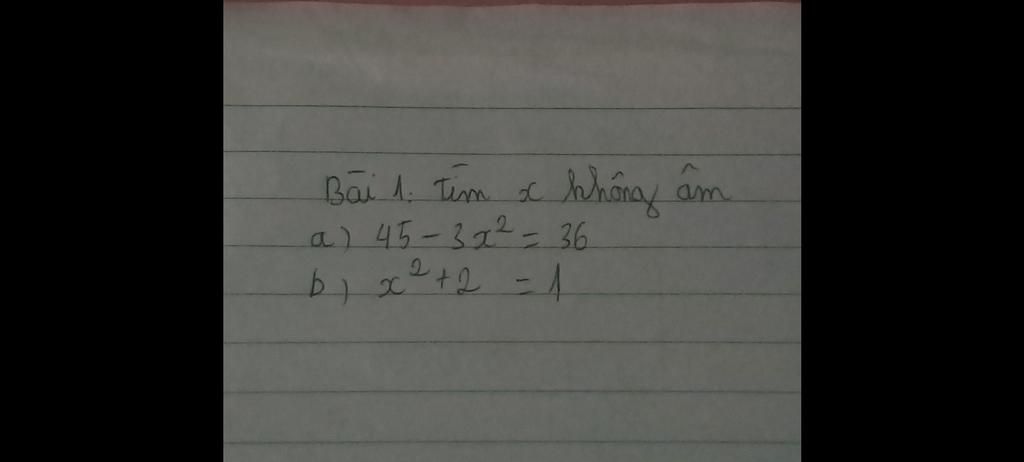 Bài 1: Tìm x không âm
a) 45 - 3x² = 36
b) x² + 2 = 1